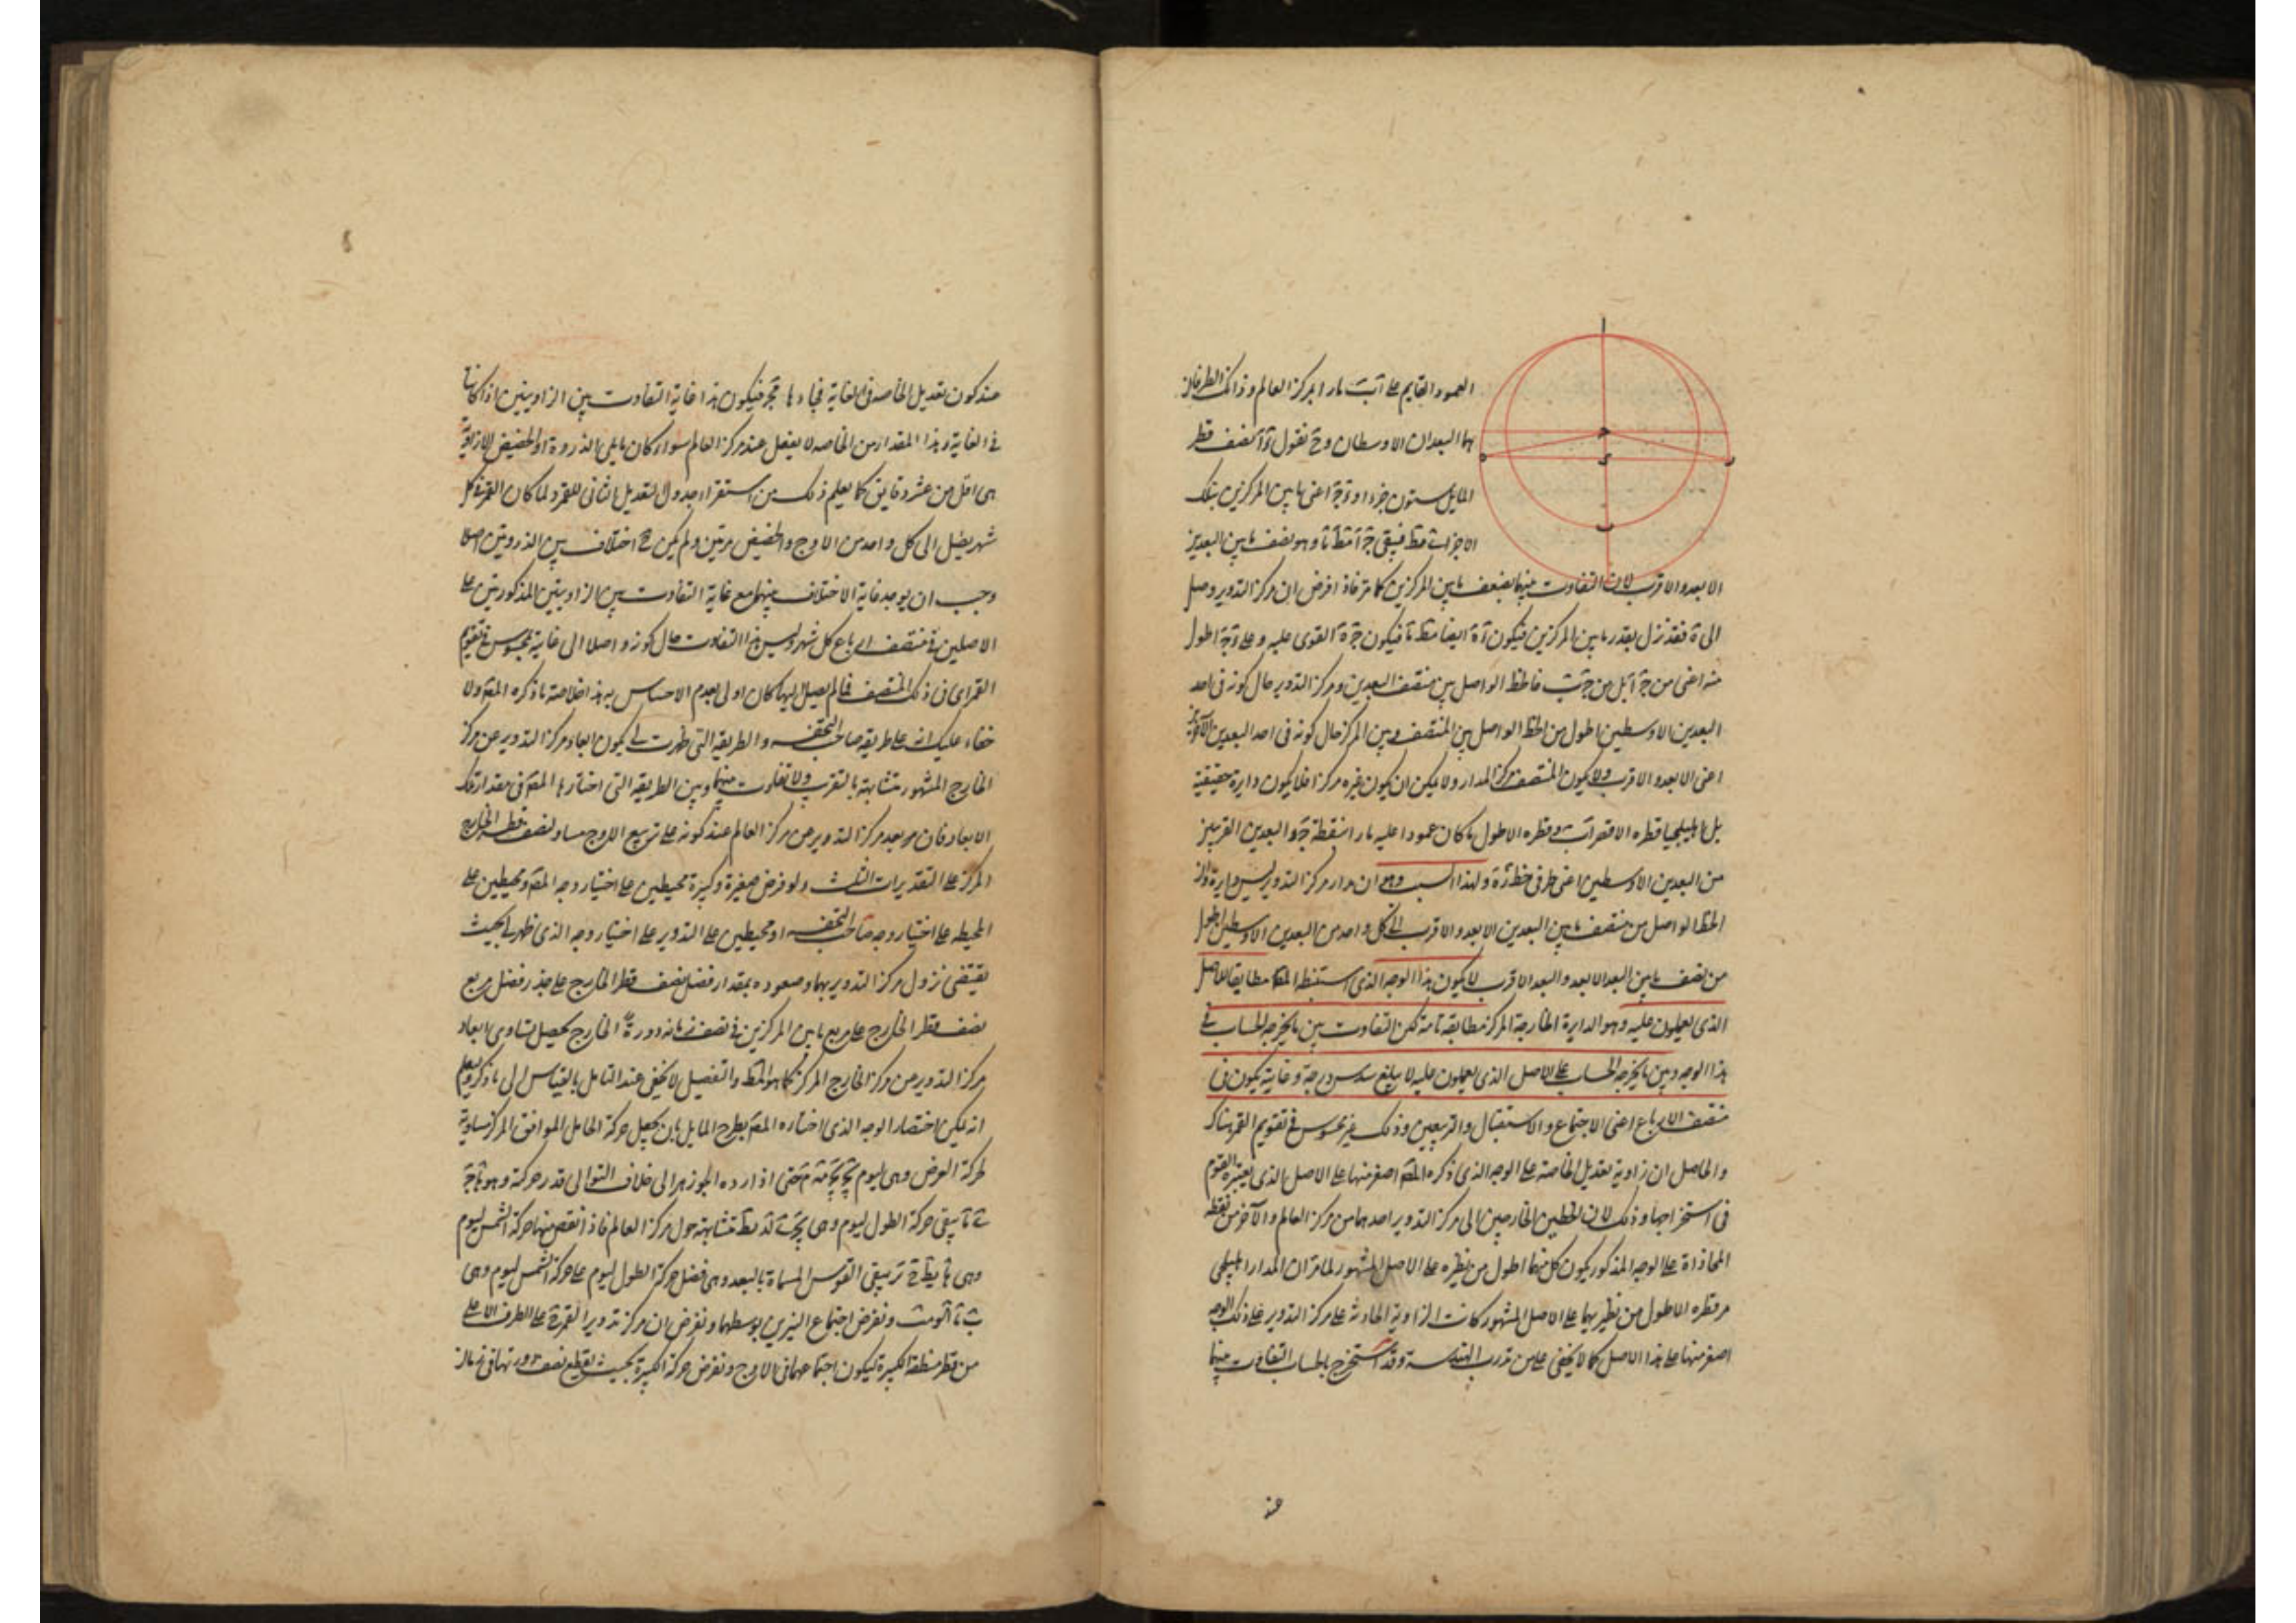 ا
العمود القايم على اب مارا بمركز العالم وذانك الطرفان
هما البعدان الاوسطان وح نقول نصف قطر
المايل ستون جزءا و اعنى ما بين المركزين بتلك
الاجزاء فيبقى وهو نصف ما بين البعدين
الابعد والاقرب لان التفاوت بينهما بضعف ما بين المركزين كما مر فاذا فرض ان مركز التدوير وصل
الى ه فقد نزل بقدر ما بين المركزين فيكون ايضا فيكون القوى عليه وعلى اطول
منه اعنى من بل من فالخط الواصل بين منتصف البعدين ومركز التدوير حال كونه فى احد
البعدين الاوسطين اطول من الخط الواصل بين المنتصف وبين المركز حال كونه فى احد البعدين الآخرين
اعنى الابعد والاقرب ولا يكون المنتصف مركز المدار ولا يمكن ان يكون غيره مركزا فلا يكون دايرة حقيقية
بل اهليلجيا قطره الاقصر اب وقطره الاطول ما كان عمودا عليه مارا بنقطة والبعدين القريبين
من البعدين الاوسطين اعنى طرفى خط ولهذا السبب وهو ان مدار مركز التدوير ليس دايرة وان
الخط الواصل من منتصف ما بين البعدين الابعد والاقرب الى كل واحد من البعدين الاوسطين اطول
من نصف ما بين البعد الابعد والبعد الاقرب لا يكون هذا الوجه الذى استنبطه المص مطابقا للاصل
الذى يعملون عليه وهو الدايرة الخارجة المركز مطابقة تامة لكن التفاوت بين ما يخرجه الحساب فى
هذا الوجه وبين ما يخرجه الحساب على الاصل الذى يعملون عليه لا يبلغ سدس درجة وغايته يكون فى
منتصف الارباع اعنى الاجتماع والاستقبال والتربيعين وذلك غير محسوس فى تقويم القمر هناك
والحاصل ان زاوية تعديل الخاصة على الوجه الذى ذكره المص اصغر منها على الاصل الذى يعتبره القوم
فى استخراجها وذلك لان الخطين الخارجين الى مركز التدوير احدهما من مركز العالم والآخر من نقطة
المحاذاة على الوجه المذكور يكون كل منهما اطول من نظيره على الاصل المشهور لما مر ان المدار اهليلجى
مر قطره الاطول من نظيريهما على الاصل المشهور كانت الزاوية الحادثة على مركز التدوير على ذلك الوجه
اصغر منها على هذا الاصل كما لا يخفى على من تدرب الهندسة وقد استخرج بالحساب التفاوت بينهما
عند
عند كون تعديل الخاصة فى الغاية فجاء فيكون هذا غاية التفاوت بين الزاويتين اذا كانتا
فى الغاية وهذا المقدار من الخاصة لا يفعل عند مركز العالم سواء كان مما يلى الذروة او الحضيض الا زاوية
هى اقل من عشر دقايق كما يعلم ذلك من استقراء جدول التعديل الثانى للقمر ولما كان القمر فى كل
شهر يصل الى كل واحد من الاوج والحضيض مرتين ولم يكن ح اختلاف بين الذروتين اصلا
وجب ان يوجد غاية الاختلاف بينهما مع غاية التفاوت بين الزاويتين المذكورتين على
الاصلين فى منتصف ارباع كل شهر وليس هذا التفاوت حال كونه واصلا الى غايته بمحسوس فى تقويم
القمر اى فى ذلك المنتصف فما لم يصل اليها كان اولى بعدم الاحساس به هذا خلاصة ما ذكره المص ولا
خفاء عليك انه على طريقة صاحب التحفة والطريقة التى ظهرت لى يكون ابعاد مركز التدوير عن مركز
الخارج المشهور متشابهة بالتقرب ولا تفاوت بينهما وبين الطريقة التى اختارها المص فى مقدار تلك
الابعاد فان بعد مركز التدوير من مركز العالم عند كونه على تربيع الاوج مساو لنصف قطر الخارج
المركز على التقديرات الثلث ولو فرض صغيرة وكبيرة محيطين على اختيار وجه المص ومحيطين على
المحيطة على اختيار وجه صاحب التحفة او محيطين على التدوير على اختيار وجه الذى ظهر لى بحيث
يقتضى نزول مركز التدوير بهما وصعوده بمقدار فضل نصف قطر الخارج على جذر فضل مربع
نصف قطر الخارج على مربع ما بين المركزين فى نصف زمان دورة الخارج يحصل تساوى ابعاد
مركز التدوير من مركز الخارج المركز كما هو الحق والتفصيل لا يخفى عند التامل بالقياس الى ما ذكر ويعلم
انه يمكن اختصار الوجه الذى اختاره المص بطرح المايل بان يجعل حركة الحامل الموافق المركز مساوية
لحركة العرض وهى ليوم حتى اذا رده الجوزهر الى خلاف التوالى قدر حركته وهو
يبقى حركة الطول ليوم وهى متشابهة حول مركز العالم فاذا نقص منها حركة الشمس ليوم
وهى يبقى القوس المسماة بالبعد وهى فضل حركة الطول ليوم على حركة الشمس ليوم وهى
ونفرض اجتماع النيرين بوسطهما ونفرض ان مركز تدوير القمر ح على الطرف الاعلى
من قطر منطقة الكبيرة ليكون اجتماعهما فى الاوج ونفرض حركة الكبيرة بحيث يقطع نصف دورتها فى زمان